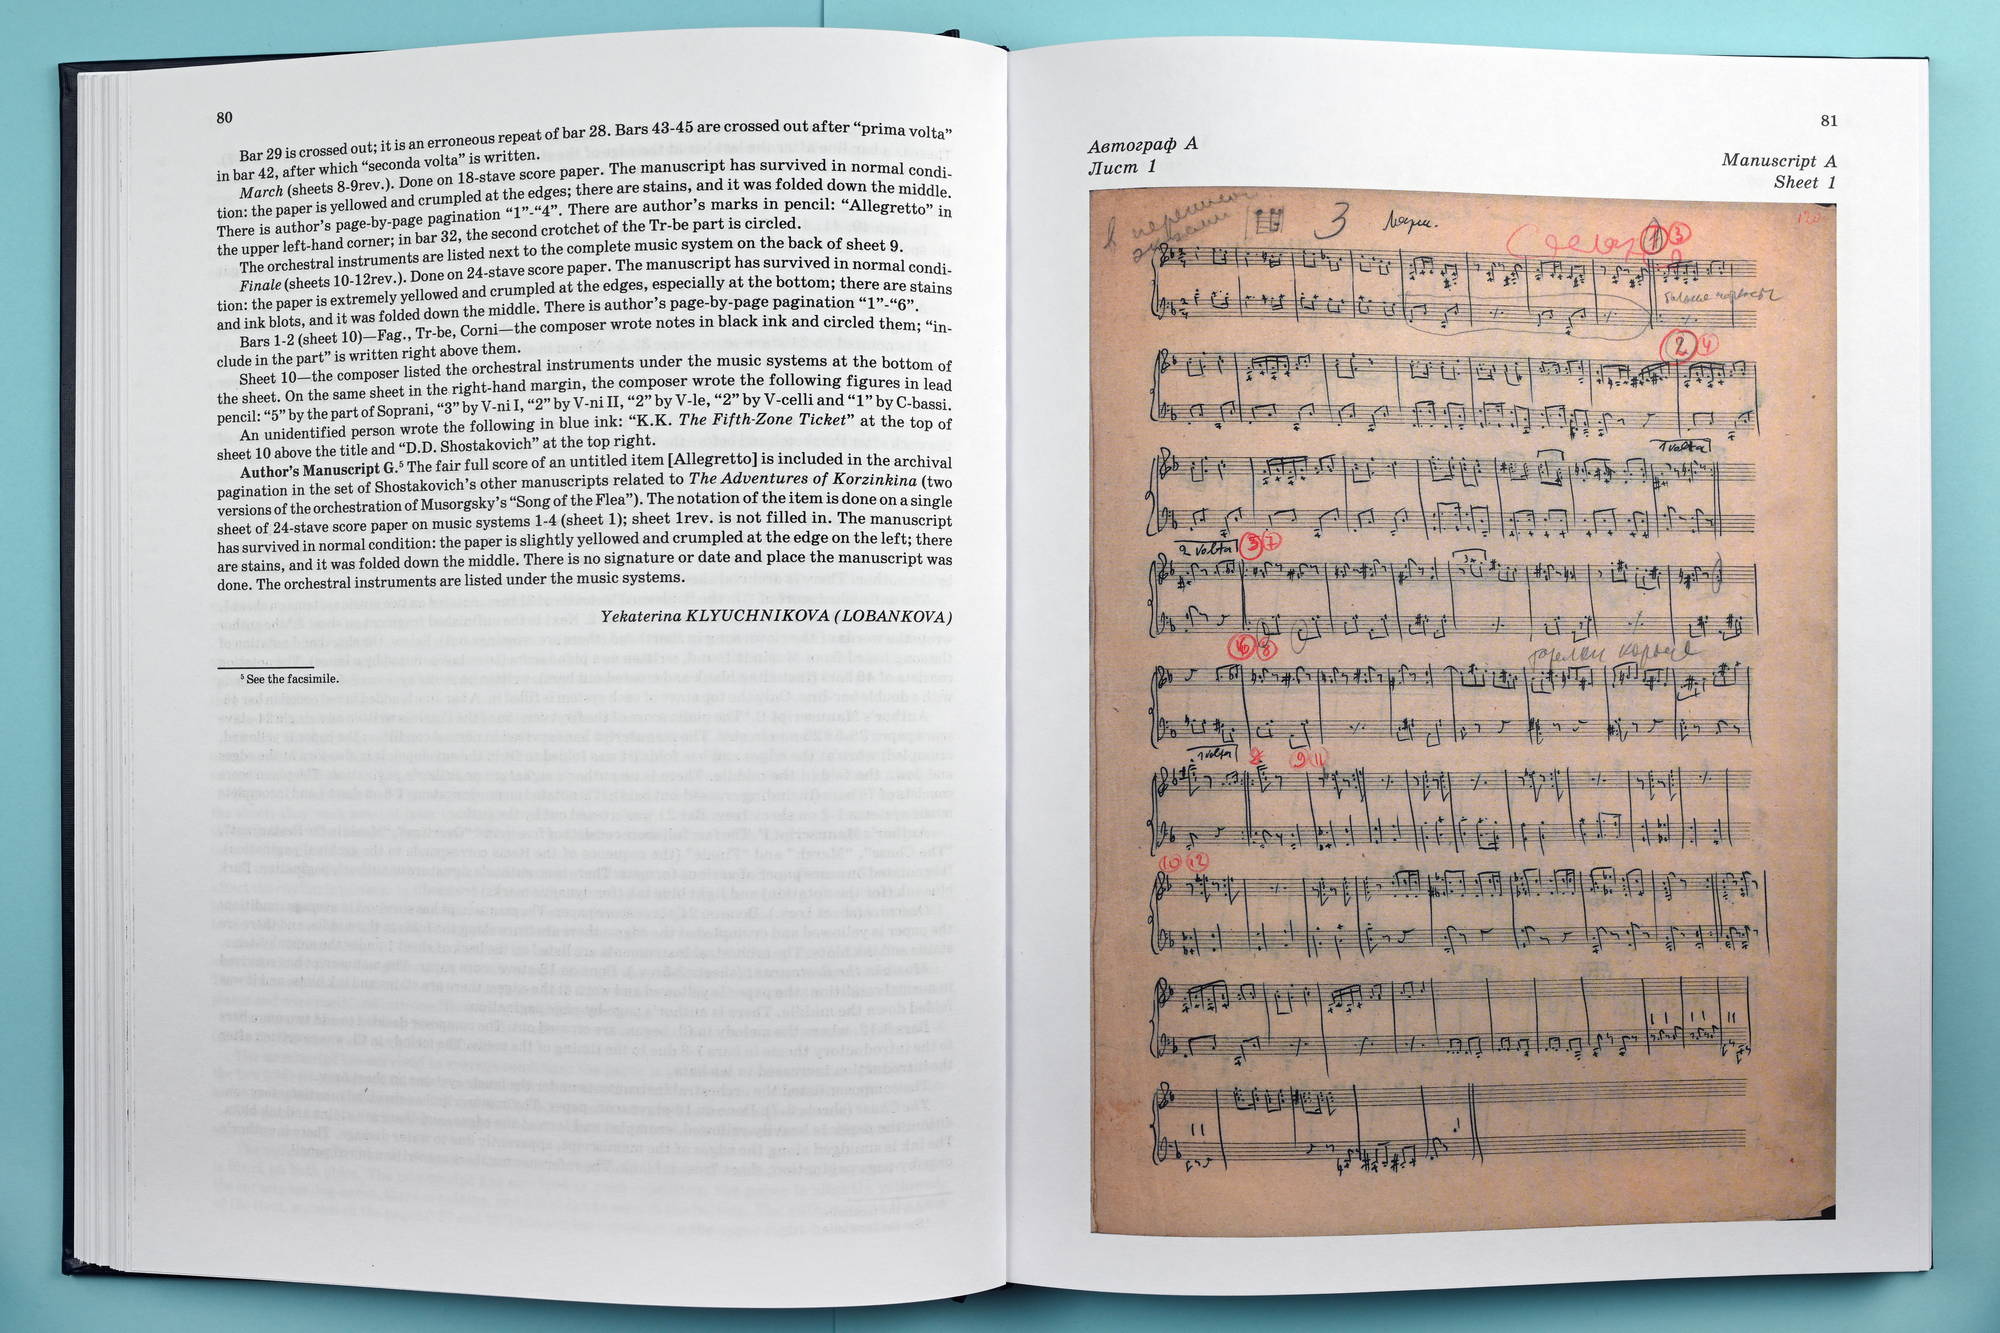 80
Bar 29 is crossed out; it is an erroneous repeat of bar 28. Bars 43-45 are crossed out after “prima volta”
in bar 42, after which “seconda volta” is written.
March (sheets 8-9rev.). Done on 18-stave score paper. The manuscript has survived in normal condi-
tion: the paper is yellowed and crumpled at the edges; there are stains, and it was folded down the middle.
There is author’s page-by-page pagination “1”-“4”. There are author’s marks in pencil: “Allegretto” in
the upper left-hand corner; in bar 32, the second crotchet of the Tr-be part is circled.
The orchestral instruments are listed next to the complete music system on the back of sheet 9.
Finale (sheets 10-12rev.). Done on 24-stave score paper. The manuscript has survived in normal condi-
tion: the paper is extremely yellowed and crumpled at the edges, especially at the bottom; there are stains
and ink blots, and it was folded down the middle. There is author’s page-by-page pagination “1”-“6”.
Bars 1-2 (sheet 10)—Fag., Tr-be, Corni—the composer wrote notes in black ink and circled them; “in-
clude in the part” is written right above them.
Sheet 10—the composer listed the orchestral instruments under the music systems at the bottom of
the sheet. On the same sheet in the right-hand margin, the composer wrote the following figures in lead
pencil: “5” by the part of Soprani, “3” by V-ni I, “2” by V-ni II, “2” by V-le, “2” by V-celli and “1” by C-bassi.
An unidentified person wrote the following in blue ink: “K.K. The Fifth-Zone Ticket” at the top of
sheet 10 above the title and “D.D. Shostakovich” at the top right.
Author’s Manuscript G.⁵ The fair full score of an untitled item [Allegretto] is included in the archival
pagination in the set of Shostakovich’s other manuscripts related to The Adventures of Korzinkina (two
versions of the orchestration of Musorgsky’s “Song of the Flea”). The notation of the item is done on a single
sheet of 24-stave score paper on music systems 1-4 (sheet 1); sheet 1rev. is not filled in. The manuscript
has survived in normal condition: the paper is slightly yellowed and crumpled at the edge on the left; there
are stains, and it was folded down the middle. There is no signature or date and place the manuscript was
done. The orchestral instruments are listed under the music systems.
Yekaterina KLYUCHNIKOVA (LOBANKOVA)
⁵ See the facsimile.
81
Автограф А
Лист 1
Manuscript A
Sheet 1
3 Марш.
1 3
2 4
1 volta
2 volta 5 7
6 8
1 volta 8 9 11
10 12